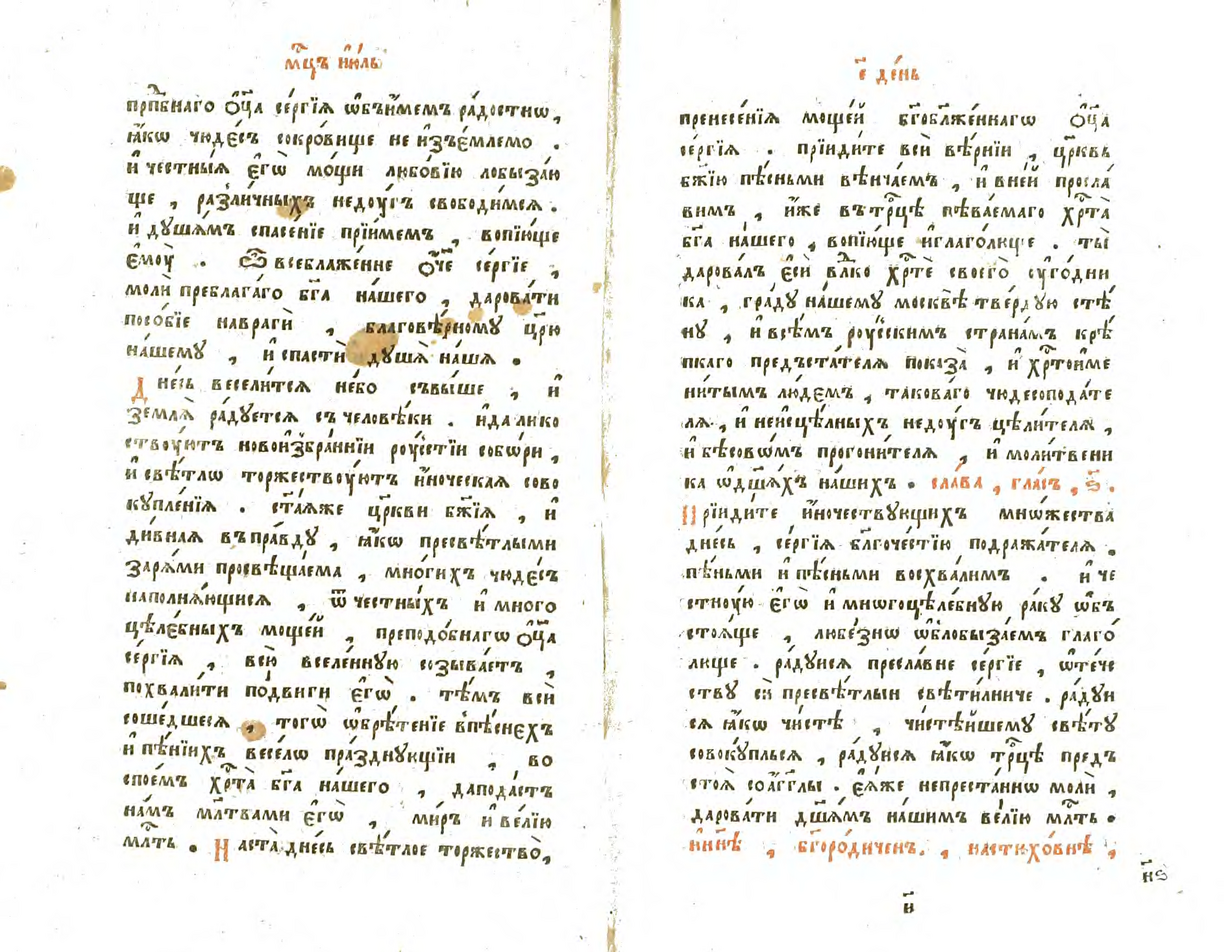 мцⷭ҇ъ і҆ю́ль
прпⷣбнаго ѻ҆ц҃а се́ргїѧ ѡ҆бъи́мемъ ра́достнѡ,
ꙗ҆́кѡ чюде́съ сокро́вище не и҆зъе́млемо .
и҆ честны́ѧ є҆гѡ̀ мо́щи любо́вїю лобыза́ю
ще , разли́чныхъ неду́гъ свободи́мсѧ .
и҆ душа́мъ спасе́нїе прїи́мемъ , вопїю́ще
є҆мꙋ̀ . ѽ всеблаже́нне ѻ҆́ч҃е се́ргїе ,
молѝ преблага́го бг҃а на́шего , дарова́ти
посо́бїе наврагѝ , благовѣ́рному цр҃ю
на́шему , и҆ спастѝ дꙋ́шѧ на́шѧ .
Дне́сь весели́тсѧ не́бо свы́ше , и҆
землѧ̀ ра́дуетсѧ съ человѣ́ки . и҆да лико
ствꙋ́ютъ новоизбра́ннїи рꙋ́сстїи собо́ри ,
и҆ свѣ́тлѡ торжествꙋ́ютъ и҆́ноческаѧ сово
кꙋпле́нїѧ . ст҃а́ѧже цр҃кви бж҃їѧ , и҆
ди́внаѧ въпра́вду , ꙗ҆́кѡ пресвѣ́тлыми
зарѧ́ми просвѣща́ема , мно́гихъ чюде́съ
наполнѧ́ющисѧ , ѿ честны́хъ и҆ много
цѣле́бныхъ моще́й , преподо́бнагѡ ѻ҆ц҃а
се́ргїѧ , всю̀ вселе́ннꙋю созыва́етъ ,
похвали́ти по́двиги є҆гѡ̀ . тѣ́мъ всѝ
соше́дшесѧ , тогѡ̀ ѡ҆брѣ́тенїе впѣ́снехъ
и҆ пѣ́нїихъ ве́селѡ пра́зднующїи , во
спое́мъ хрⷭ҇та̀ бг҃а на́шего , дапода́стъ
на́мъ мл҃твами є҆гѡ̀ , ми́ръ и҆ ве́лїю
млⷭ҇ть . Наста̀ дне́сь свѣ́тлое торжество̀,
є҃ де́нь
пренесе́нїѧ моще́й бг҃облаже́ннагѡ ѻ҆ц҃а
се́ргїѧ . прїиди́те всѝ вѣ́рнїи , цр҃квь
бж҃їю пѣ́сньми вѣнча́емъ , и҆ вне́й просла́
вимъ , и҆́же втрⷪ҇цѣ пѣва́емаго хрⷭ҇та̀
бг҃а на́шего , вопїю́ще и҆глаго́люще . ты̀
дарова́лъ є҆сѝ влⷣко хрⷭ҇тѐ своего̀ ᲂу҆го́дни
ка , гра́дꙋ на́шемꙋ москвѣ̀ тве́рдꙋю стѣ́
нꙋ , и҆ всѣ́мъ рꙋ́сскимъ страна́мъ крѣ́
пкаго предъста́телѧ показа̀ , и҆ хрⷭ҇тоиме
ни́тымъ лю́демъ , такова́го чюдесопода́те
лѧ , и҆ неисцѣ́лныхъ недꙋ́гъ цѣли́телѧ ,
и҆ бѣсовѡ́мъ прогони́телѧ , и҆ моли́твени
ка ѡ҆дш҃а́хъ на́шихъ . сла́ва , гла́съ , ѕ҃.
Прїиди́те и҆́ночествꙋющихъ мнѡ́жества
дне́сь , се́ргїѧ бл҃гоче́стїю подража́телѧ .
пѣ́ньми и҆ пѣ́сньми восхва́лимъ . и҆ че
стнꙋ́ю є҆гѡ̀ и҆ мнѡгоцѣле́бнꙋю ра́кꙋ ѡ҆бъ
стоѧ́ще , любе́знѡ ѡ҆блобыза́емъ глаго́
люще . ра́дꙋисѧ пресла́вне се́ргїе , ѻ҆те́че
ствꙋ сѝ пресвѣ́тлыи свѣти́лниче . ра́дꙋи
сѧ ꙗ҆́кѡ чи́стѣ , чистѣ́йшемꙋ свѣ́тꙋ
совокꙋ́пльсѧ , ра́дꙋисѧ ꙗ҆́кѡ трⷪ҇цѣ предъ
стоѧ̀ соа҆́гг҃лы . є҆ѧ́же непреста́ннѡ молѝ ,
дарова́ти дш҃а́мъ на́шимъ ве́лїю млⷭ҇ть .
и҆ нн҃ѣ , бг҃оро́диченъ. , настихо́внѣ ,
н҃ѕ
и҃